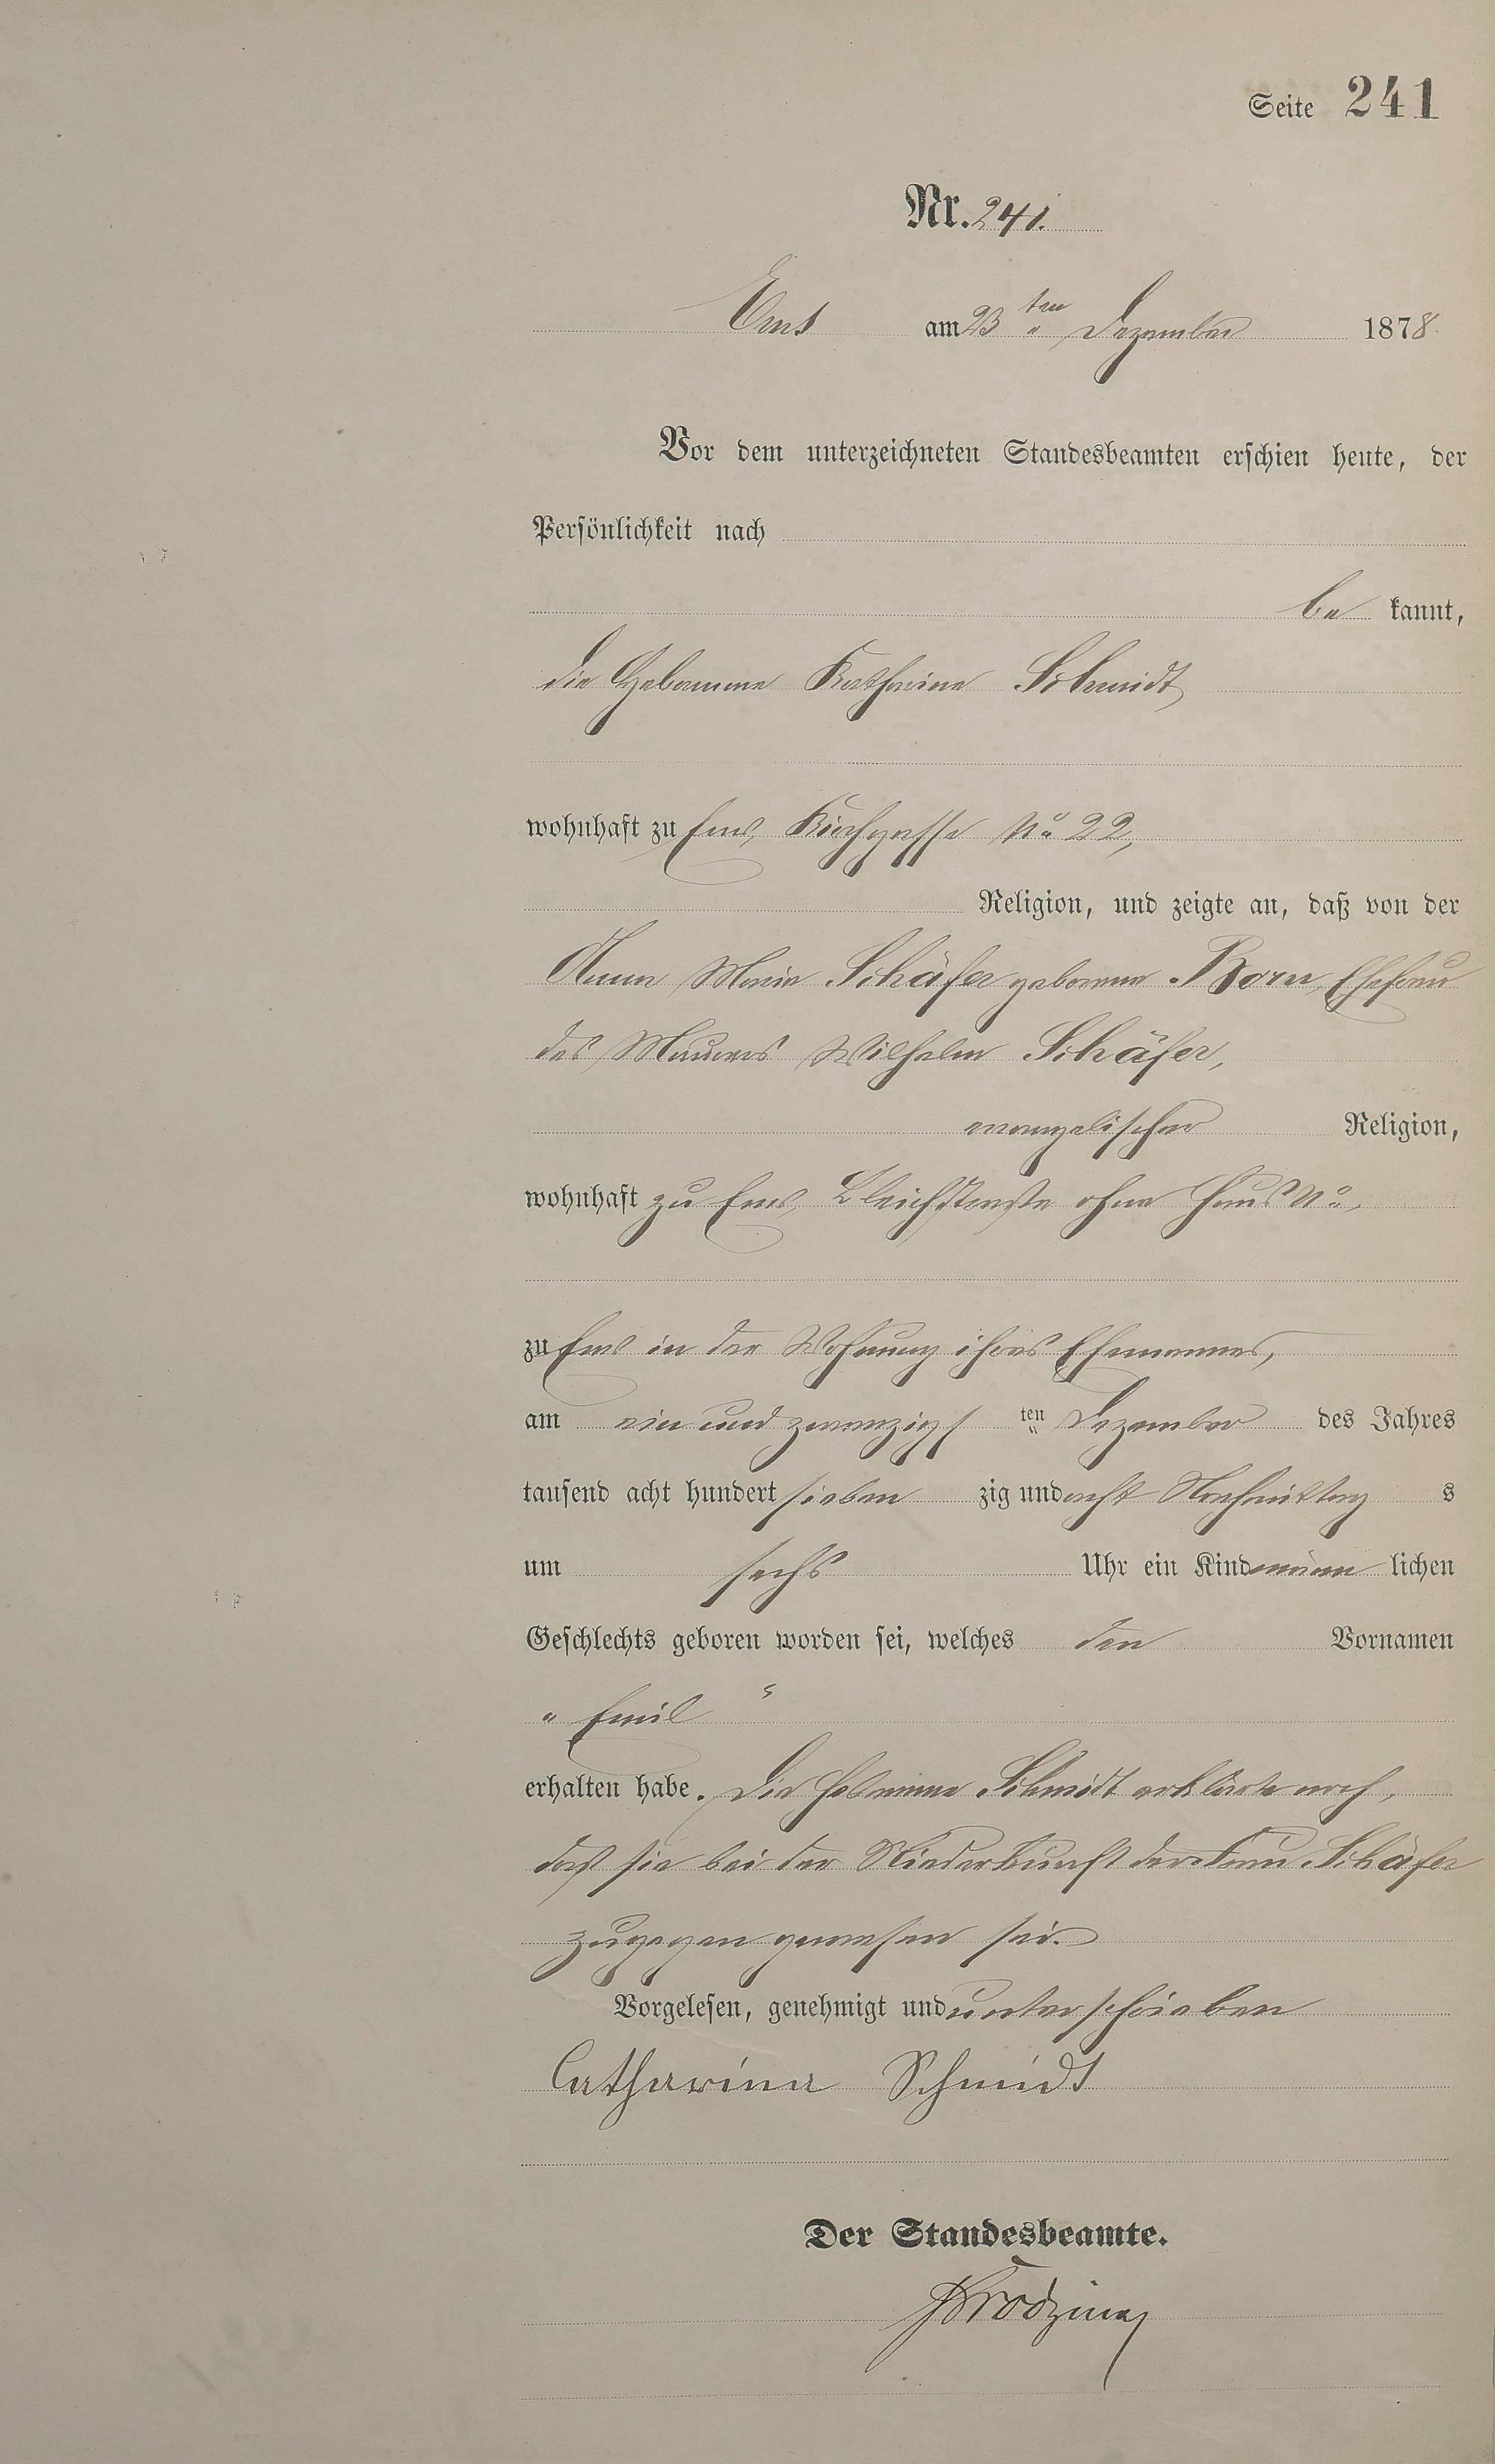 Seite 241
Nr. 241.
Ems am 23 ten Dezember 1878.
Vor dem unterzeichneten Standesbeamten erschien heute, der
Persönlichkeit nach
be kannt,
die Hebamme Katharina Schmidt,
wohnhaft zu Ems, Kirchgasse No 22,
Religion, und zeigte an, daß von der
Anna Maria Schäfer geborene Born, Ehefrau
des Maurers Wilhelm Schäfer,
evangelischer Religion,
wohnhaft zu Ems, Bleichstraße ohne Haus No,
zu Ems in der Wohnung ihres Ehemannes,
am ein und zwanzigs ten Dezember des Jahres
tausend acht hundert sieben zig und acht Nachmittag s
um sechs Uhr ein Kind männ lichen
Geschlechts geboren worden sei, welches den Vornamen
„ Emil "
erhalten habe. Die Hebamme Schmidt erklärte noch,
daß sie bei der Niederkunft der Frau Schäfer
zugegen gewesen sei.
Vorgelesen, genehmigt und unterschrieben
Catharina Schmidt
Der Standesbeamte.